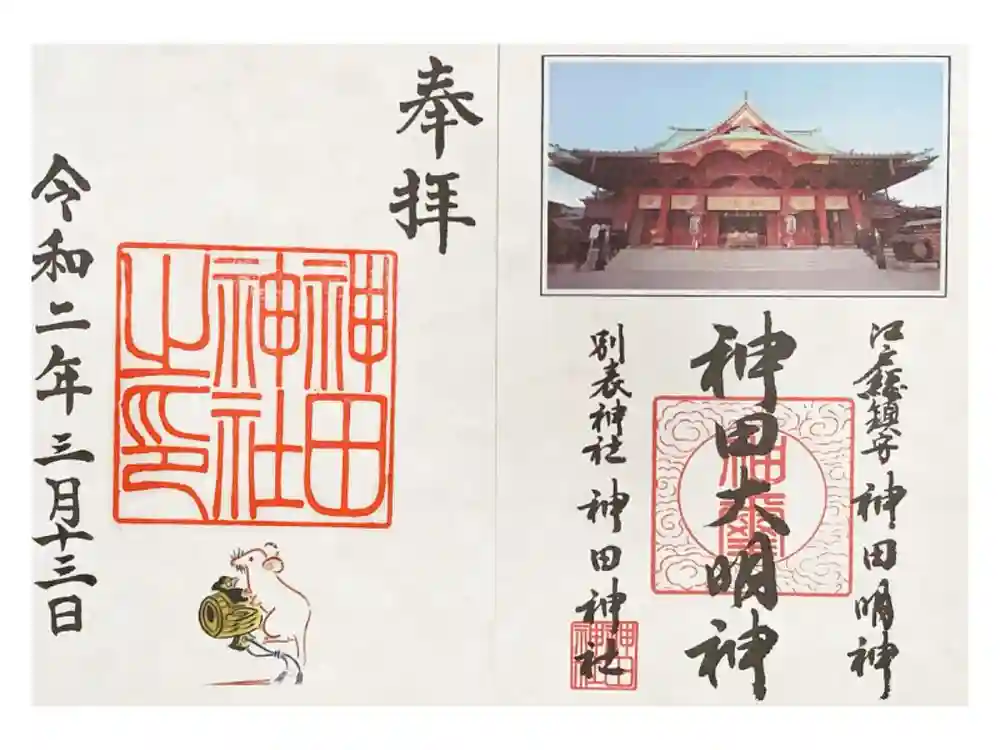 江戸総鎮守 神田明神
神田大明神
別表神社 神田神社
神田
神社
奉拝
神田
神社
之印
令和二年三月十三日